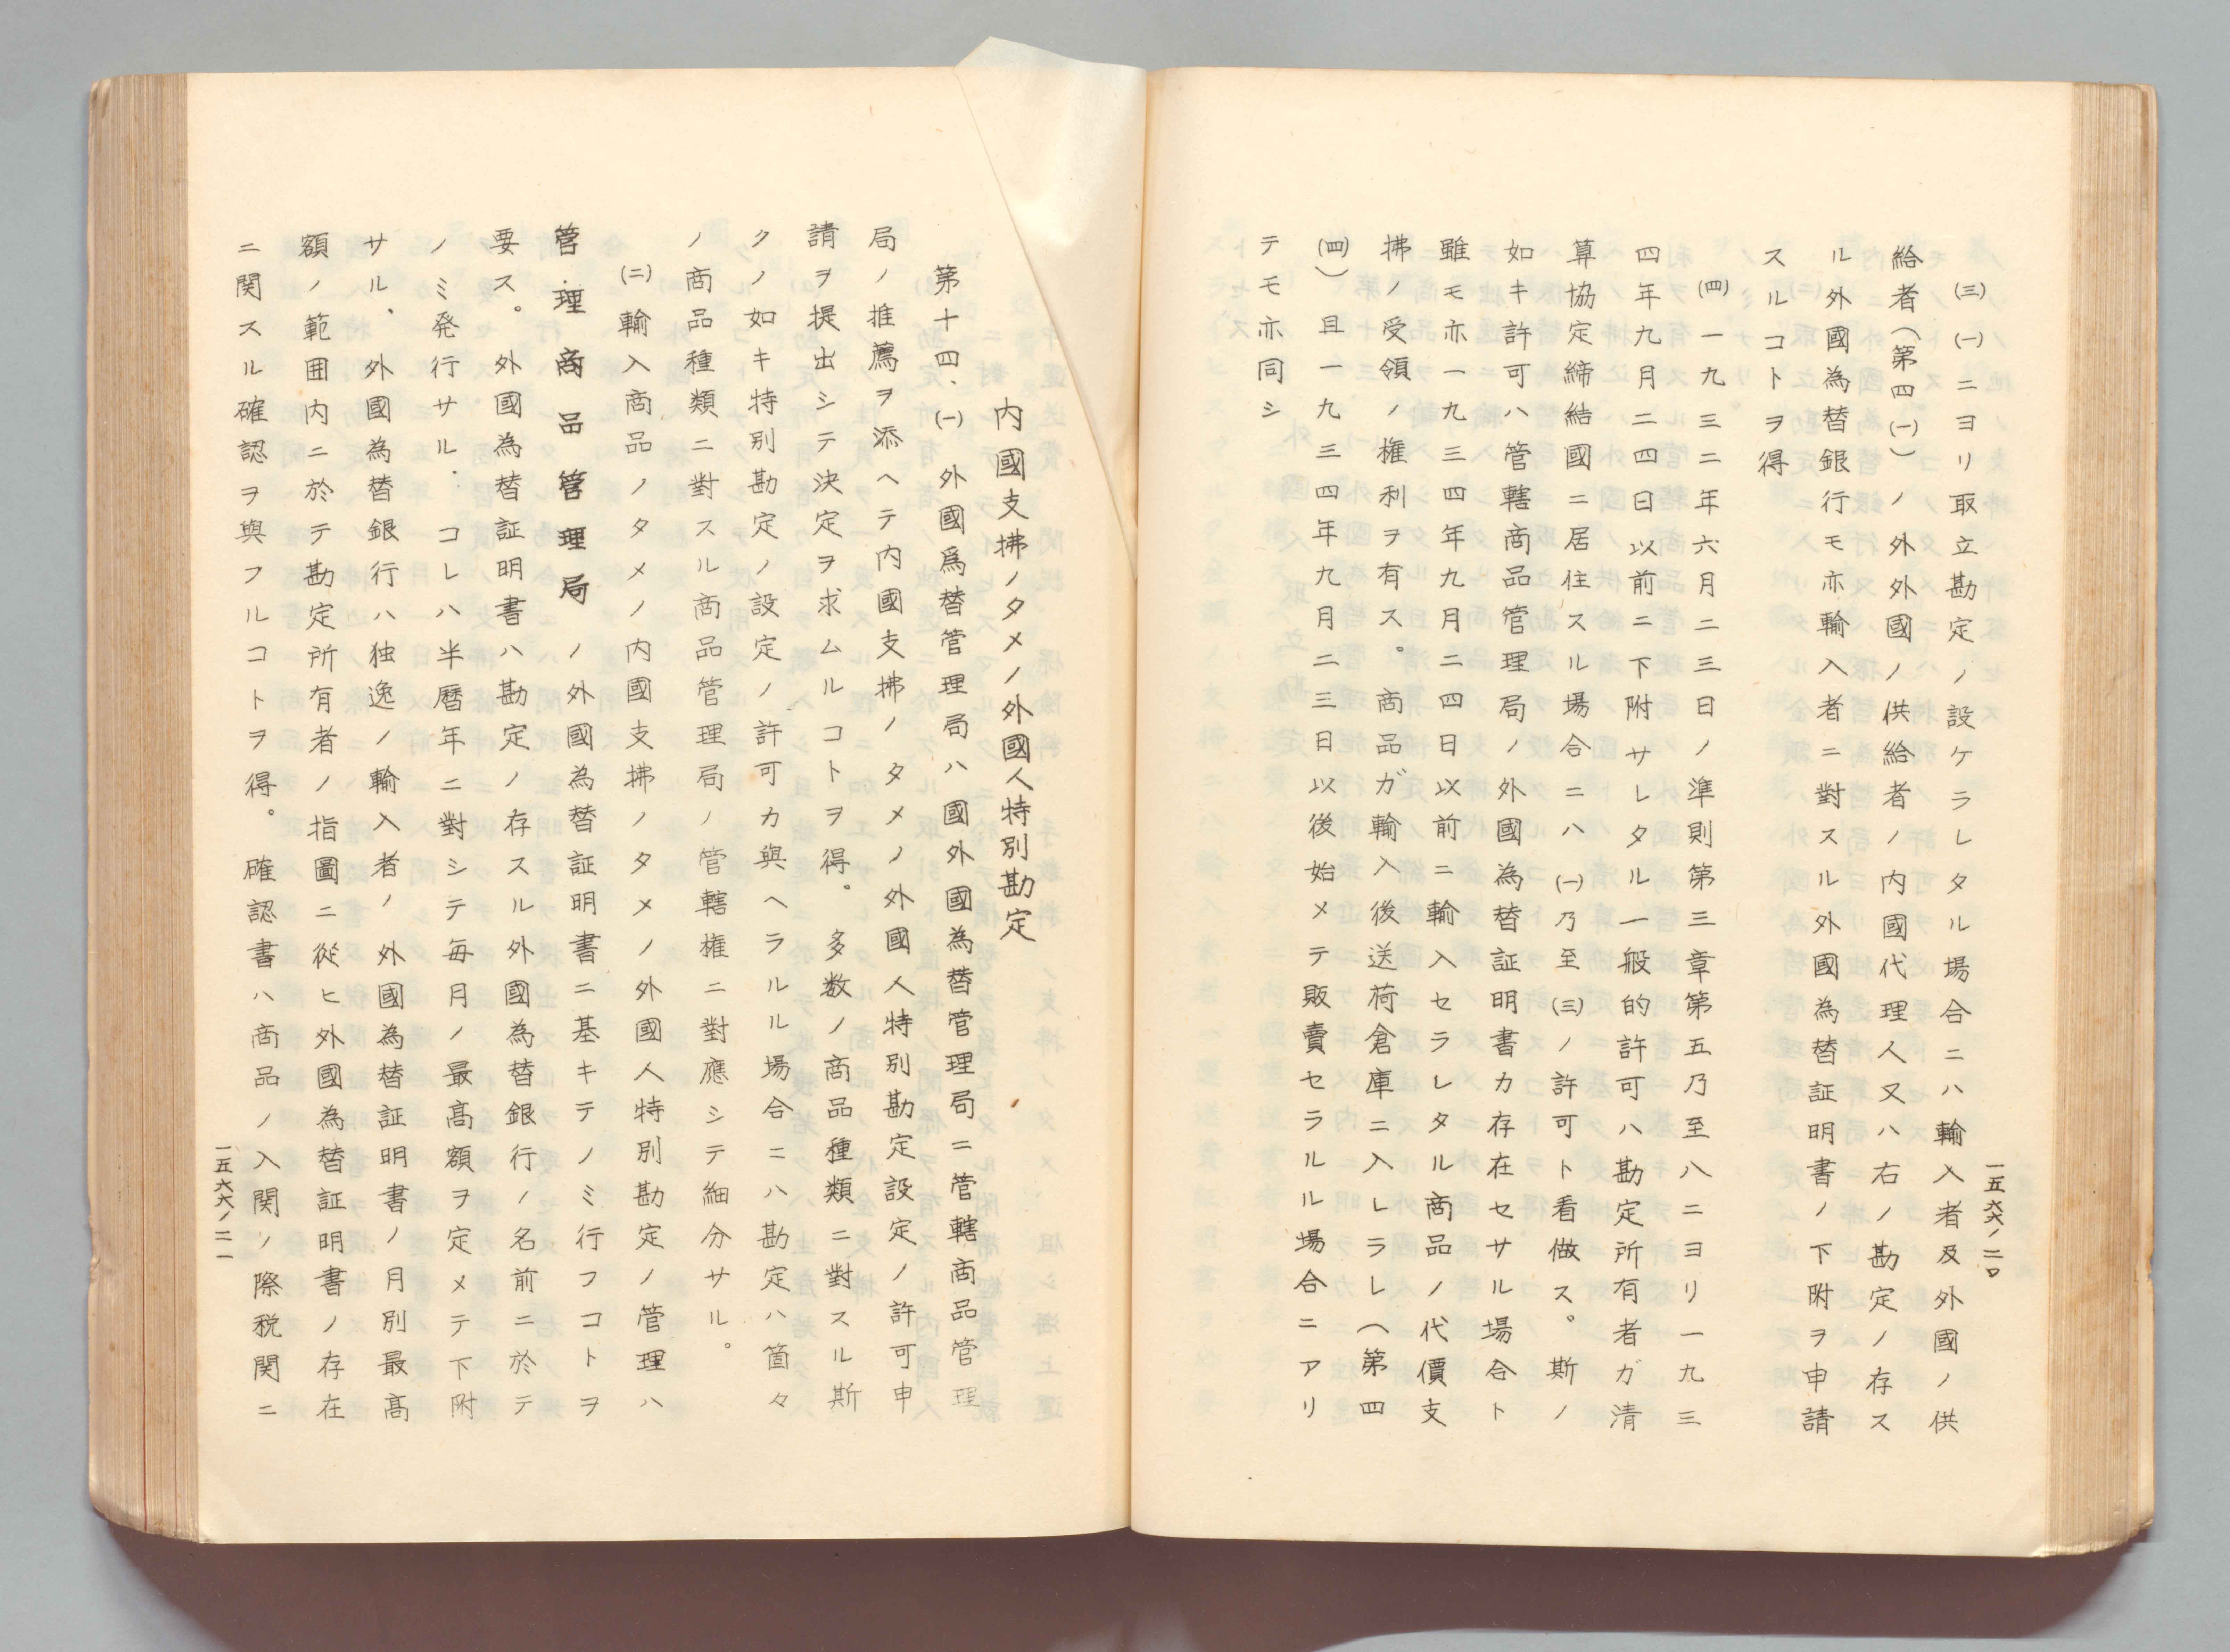 一五六六ノ二〇
㈢ ㈠ニヨリ取立勘定ノ設ケラレタル場合ニハ輸入者及外國ノ供
給者(第四㈠)ノ外外國ノ供給者ノ内國代理人又ハ右ノ勘定ノ存ス
ル外國為替銀行モ亦輸入者ニ對スル外國為替証明書ノ下附ヲ申請
スルコトヲ得
㈣ 一九三二年六月二三日ノ準則第三章第五乃至八ニヨリ一九三
四年九月二四日以前ニ下附サレタル一般的許可ハ勘定所有者ガ清
算協定締結國ニ居住スル場合ニハ㈠乃至㈢ノ許可ト看做ス。斯ノ
如キ許可ハ管轄商品管理局ノ外國為替証明書カ存在セサル場合ト
雖モ亦一九三四年九月二四日以前ニ輸入セラレタル商品ノ代價支
拂ノ受領ノ権利ヲ有ス。商品ガ輸入後送荷倉庫ニ入レラレ(第四
㈣)且一九三四年九月二三日以後始メテ販賣セラルル場合ニアリ
テモ亦同シ
内國支拂ノタメノ外國人特別勘定
第十四、㈠ 外國爲替管理局ハ國外國為替管理局ニ管轄商品管理
局ノ推薦ヲ添ヘテ内國支拂ノタメノ外國人特別勘定設定ノ許可申
請ヲ提出シテ決定ヲ求ムルコトヲ得。多数ノ商品種類ニ對スル斯
クノ如キ特別勘定ノ設定ノ許可カ與ヘラルル場合ニハ勘定ハ箇々
ノ商品種類ニ對スル商品管理局ノ管轄権ニ對應シテ細分サル。
㈡ 輸入商品ノタメノ内國支拂ノタメノ外國人特別勘定ノ管理ハ
管理商品管理局ノ外國為替証明書ニ基キテノミ行フコトヲ
要ス。外國為替証明書ハ勘定ノ存スル外國為替銀行ノ名前ニ於テ
ノミ発行サル. コレハ半曆年ニ對シテ毎月ノ最高額ヲ定メテ下附
サル、外國為替銀行ハ独逸ノ輸入者ノ外國為替証明書ノ月別最高
額ノ範囲内ニ於テ勘定所有者ノ指圖ニ從ヒ外國為替証明書ノ存在
ニ関スル確認ヲ與フルコトヲ得。確認書ハ商品ノ入関ノ際税関ニ
一五六六ノ二一